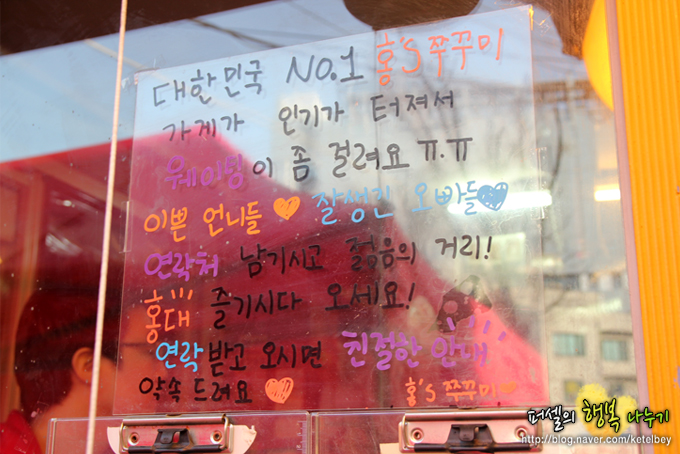 대한민국 NO.1 홍's 쭈꾸미
가게가 인기가 터져서
웨이팅이 좀 걸려요 ㅠ.ㅠ
이쁜 언니들 잘생긴 오빠들
연락처 남기시고 젊음의 거리!
홍대 즐기시다 오세요!
연락받고 오시면 친절한 안내
약속드려요 홍's 쭈꾸미
퍼셀의 행복 나누기
http://blog.naver.com/ketelbey